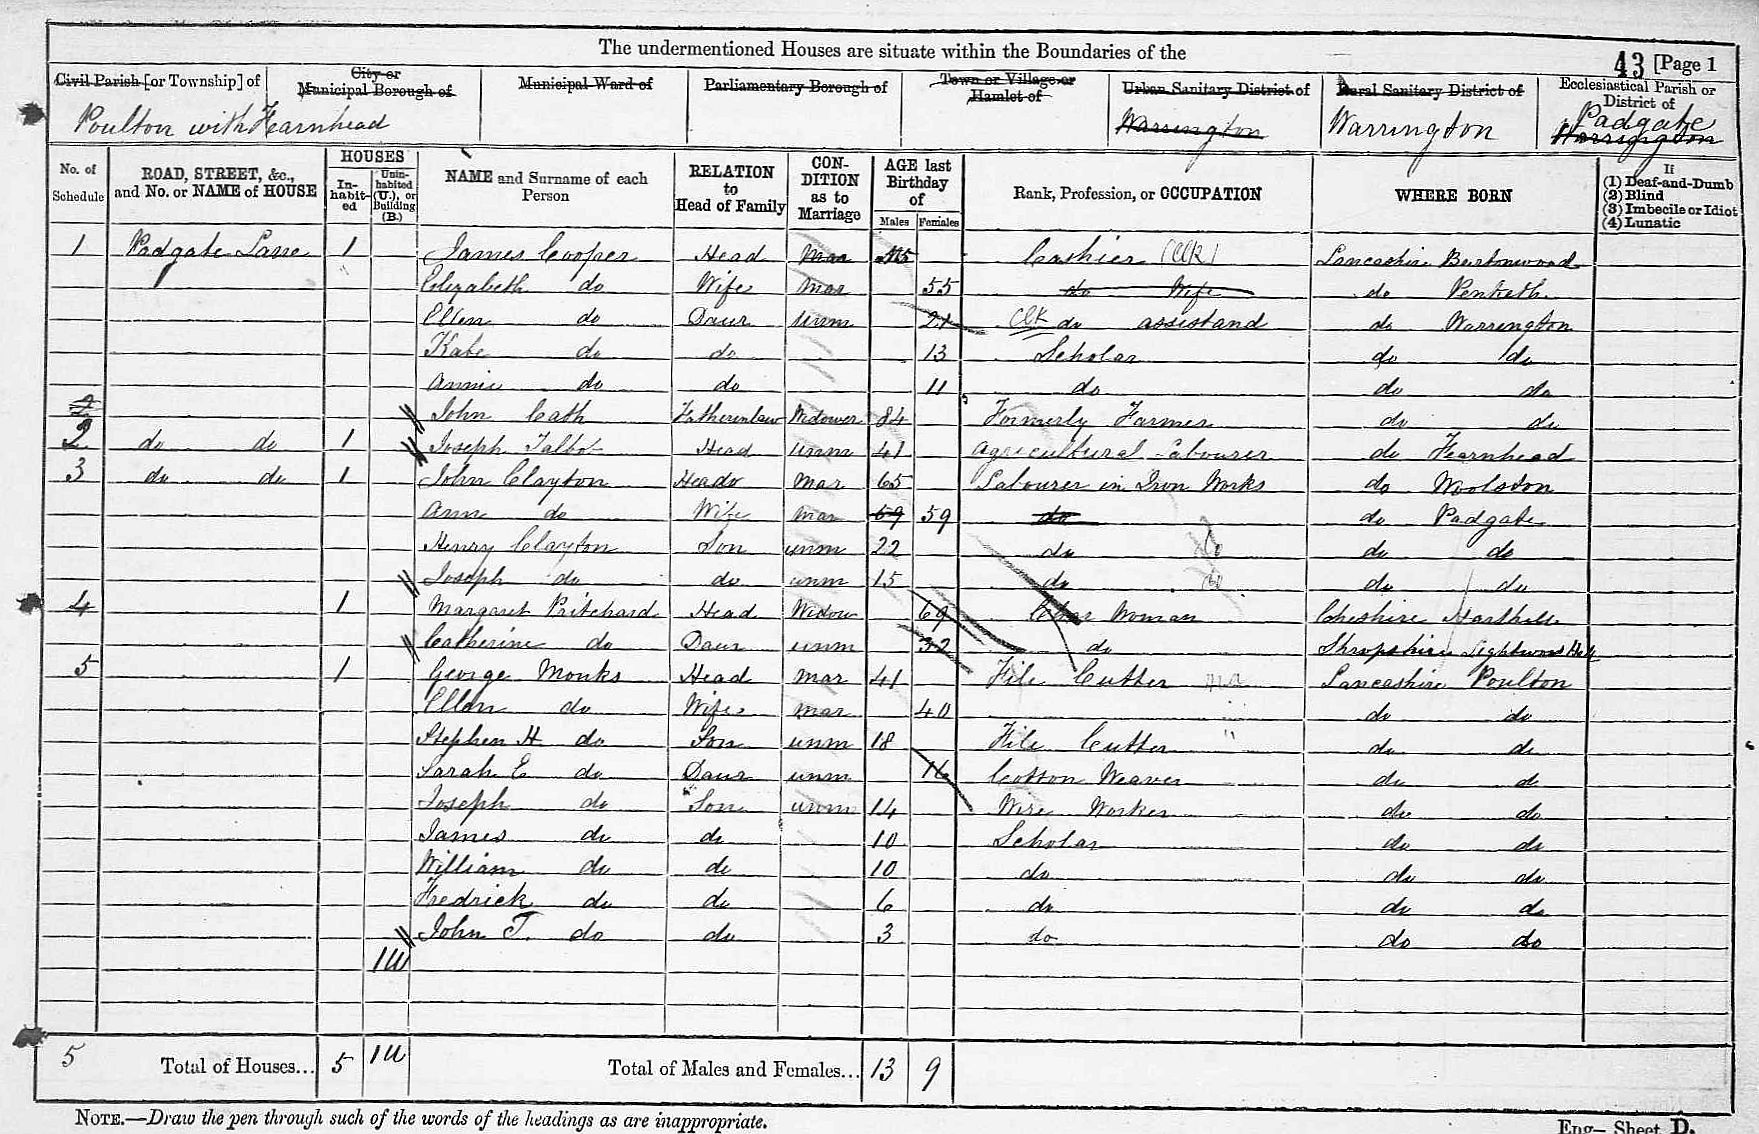 The undermentioned Houses are situate within the Boundaries of the
43 [Page 1
Civil Parish [or Township] of
City or Municipal Borough of
Municipal Ward of
Parliamentary Borough of
Town or Village or Hamlet of
Urban Sanitary District of
Rural Sanitary District of
Ecclesiastical Parish or District of
Poulton with Fearnhead
Warrington
Warrington
Padgate
Warrington
No. of Schedule
ROAD, STREET, &c., and No. or NAME of HOUSE
HOUSES
In-habit-ed
Unin-habited (U.), or Building (B.)
NAME and Surname of each Person
RELATION to Head of Family
CON-DITION as to Marriage
AGE last Birthday of
Males
Females
Rank, Profession, or OCCUPATION
WHERE BORN
If
(1) Deaf-and-Dumb
(2) Blind
(3) Imbecile or Idiot
(4) Lunatic
1 Padgate Lane 1 James Cooper Head Mar Cashier (Clk) Lancashire Burtonwood
Elizabeth do Wife Mar 55 do Wife do Penketh
Ellen do Daur unm 21 Clk do assistand do Warrington
Kate do do 13 Scholar do do
Annie do do 11 do do do
2 John Cath Fatherinlaw Widower 84 Formerly Farmer do do
2 do do 1 Joseph Talbot Head unm 41 Agricultural Labourer do Fearnhead
3 do do 1 John Clayton Head Mar 65 Labourer in Iron Works do Woolston
Ann do Wife Mar 59 59 do do Padgate
Henry Clayton Son unm 22 do do do do
Joseph do do unm 15 do do do do
4 1 Margaret Pritchard Head Widow 69 Char Woman Cheshire
Catherine do Daur unm 32 do Shropshire Lightwood Hall
5 1 George Monks Head Mar 41 File Cutter Lancashire Poulton
Ellen do Wife Mar 40 do do
Stephen H do Son unm 18 File Cutter " do do
Sarah E do Daur unm 16 Cotton Weaver do do
Joseph do Son unm 14 Wire Worker do do
James do do 10 Scholar do do
William do do 10 do do do
Fredrick do do 6 do do do
John T. do do 3 do do do
1U
5 Total of Houses... 5 1U Total of Males and Females... 13 9
NOTE.—Draw the pen through such of the words of the headings as are inappropriate.
Eng— Sheet D.